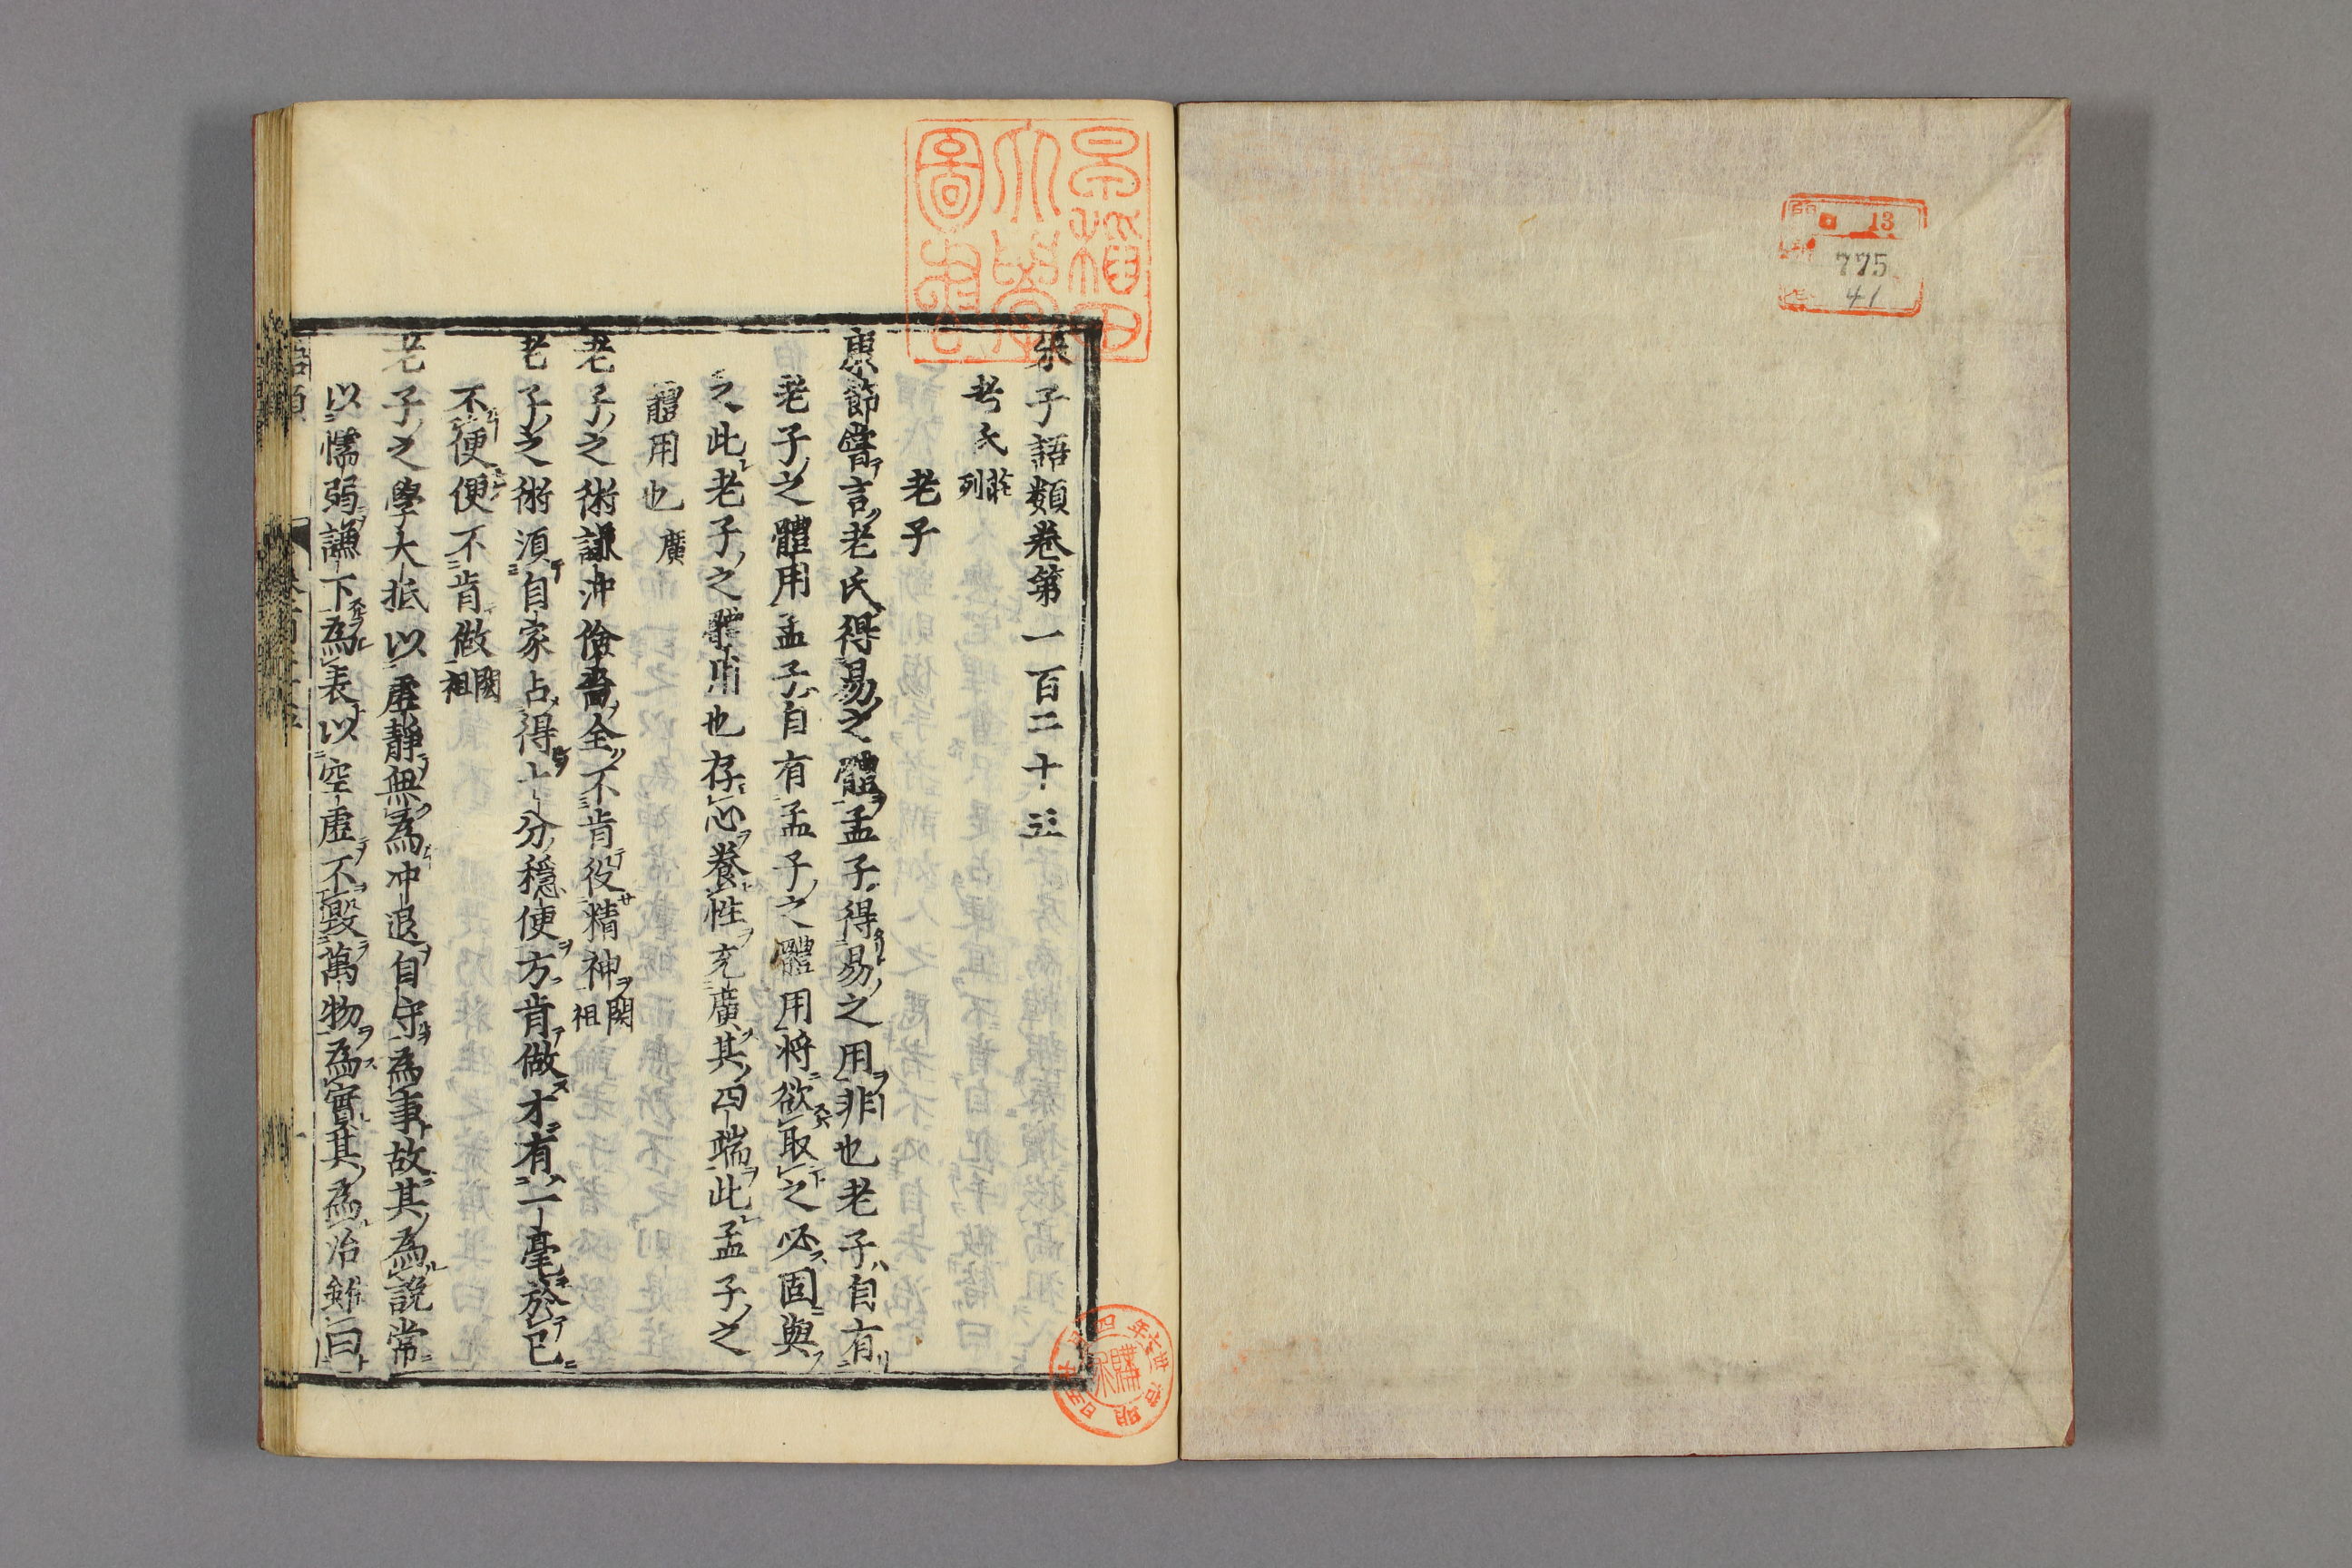 朱子語類卷第一百二十五
老氏 莊列
老子
康節嘗言老氏得易之體孟子得易之用非也老子自有
老子之體用孟子自有孟子之體用將欲取之必固與
之此老子之體用也存心養性充廣其四端此孟子之
體用也 廣
老子之術謙沖儉嗇全不肯役精神 閎祖
老子之術須自家占得十分穩便方肯做才有一毫於己
不便便不肯做 閎祖
老子之學大抵以虛靜無為冲退自守為事故其為說常
以懦弱謙下為表以空虛不毀萬物為實其為治雖曰
語類
早稻田大學圖書
明治卅六年四月廿五日
購求
13
775
41